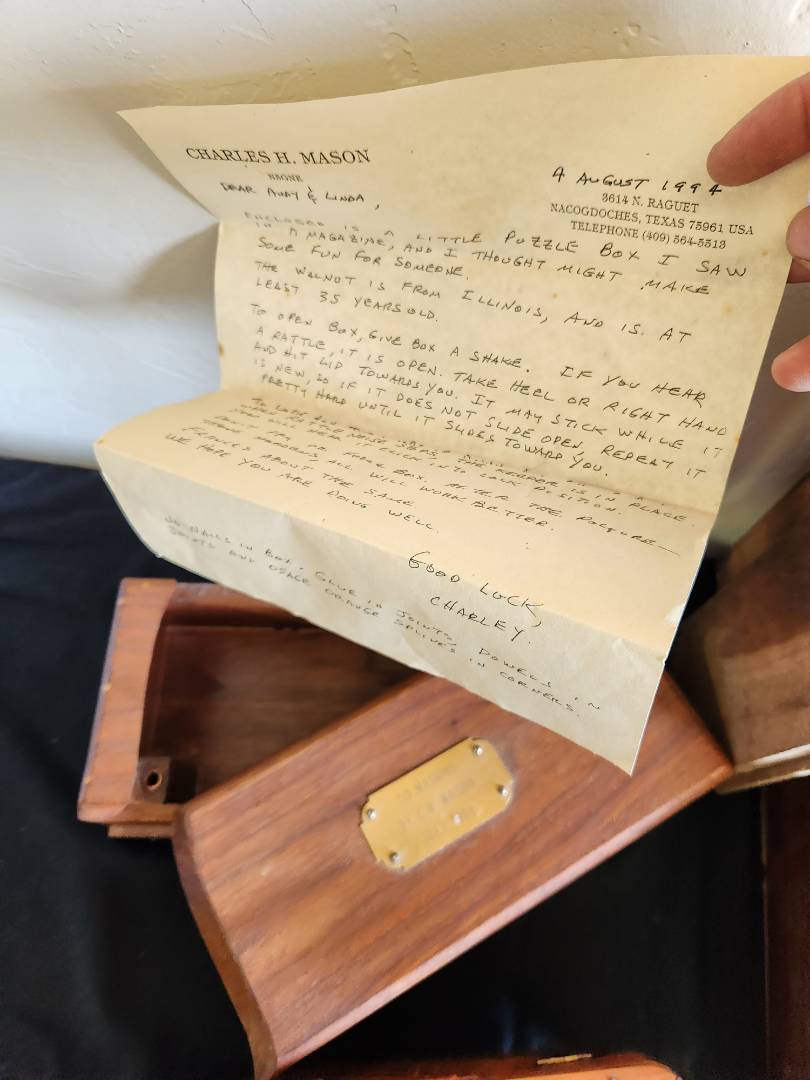 CHARLES H. MASON
4 AUGUST 1994
3614 N. RAGUET
NACOGDOCHES, TEXAS 75961 USA
TELEPHONE (409) 564-5513
DEAR ANDY & LINDA,
ENCLOSED IS A LITTLE PUZZLE BOX I SAW
IN A MAGAZINE, AND I THOUGHT MIGHT MAKE
SOME FUN FOR SOMEONE.
THE WALNUT IS FROM ILLINOIS, AND IS AT
LEAST 35 YEARS OLD.
TO OPEN BOX, GIVE BOX A SHAKE. IF YOU HEAR
A RATTLE, IT IS OPEN. TAKE HEEL OR RIGHT HAND
AND HIT LID TOWARDS YOU. IT MAY STICK WHILE IT
IS NEW, SO IF IT DOES NOT SLIDE OPEN, REPEAT IT
PRETTY HARD UNTIL IT SLIDES TOWARD YOU.
WHEN RATTLE NOISE STOPS THE IS IN PLACE.
YOU WILL HEAR A CLICK INTO LOCK POSITION.
DON'T OR FORCE BOX. AFTER THE
HARDENS, ALL WILL WORK BETTER.
FRANCES ABOUT THE SAME.
WE HOPE YOU ARE DOING WELL.
GOOD LUCK,
CHARLEY.
NO NAILS IN BOX. GLUE IN JOINTS, DOWELS IN
JOINTS AND OSAGE ORANGE SPLINES IN CORNERS.